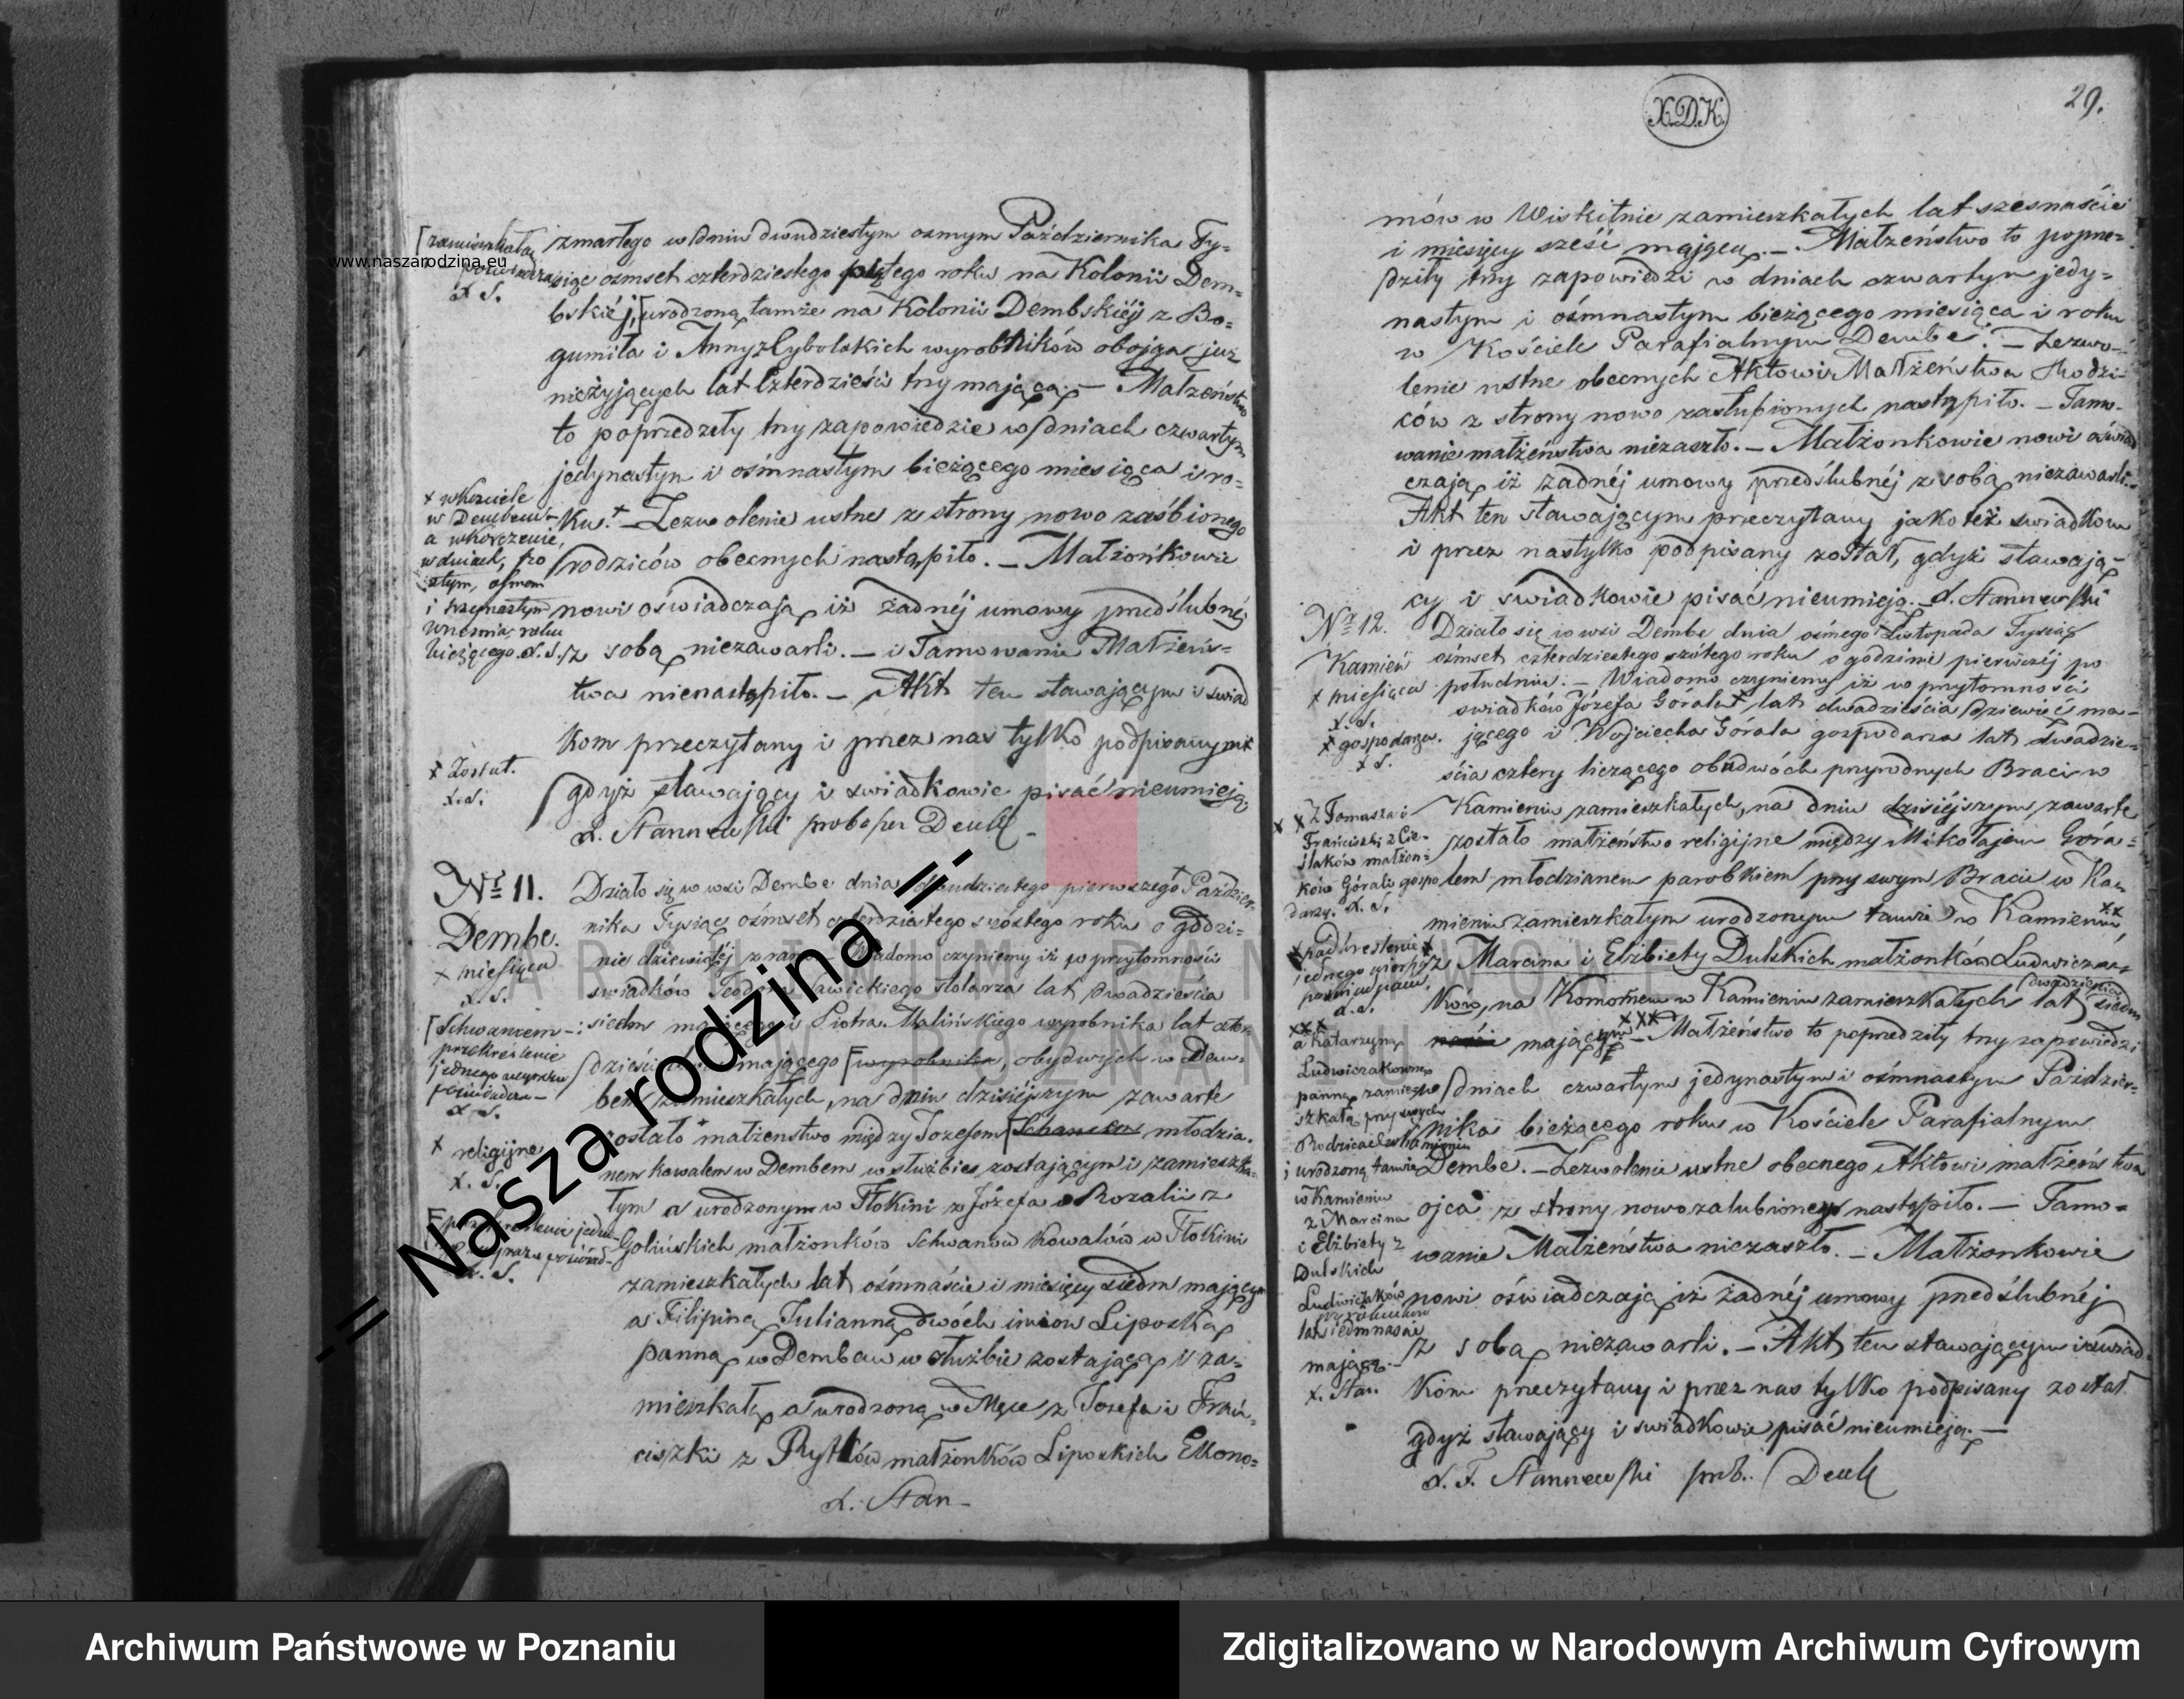 [zamieszkałą
www.naszarodzina.eu
X S.
zmarłego w dniu dwudziestym osmym Października Ty-
siąc ośmset czterdziestego piątego roku na Kolonii Dem-
bskiéj, [urodzoną tamże na Kolonii Dembskiéj z Bo-
gumiła i Anny z Cybolskich wyrobników obojga już
nieżyjących lat Czterdzieści trzy mającą. — Małżeństwo
to poprzedzeły try zapowiedzie w dniach czwartym
jedynastym i ośmnastym bieżącego miesiąca i ro-
ku.+ — Zezwolenie ustne ze strony nowo zaśbionego
rodziców obecnych nastąpiło. — Małżonkowie
nowi oświadczają iż żadnéj umowy przedślubnéj
z sobą niezawarli. — i Tamowanie Małżeńs-
twa nienastąpiło. — Akt ten stawającym i swiad
kom przeczytany i przez nas tylko podpisanym x
gdyż stawający i swiadkowie pisać nieumieją
X. Stannewski
x w Kosciele
w Dembem
wdniach,
i trzynastym
Wrzesnia, roku
bieżącego. X. S.
x Został.
X. S.
Nr 11.
Dembe.
x miesiąca
X. S.
[Schwanzem
przekreślenie
jednego wyrazu
X. S.
x religijne
X. S.
X. S.
Działo się w wsi Dembe dnia dwudziestego pierwszego + Paździer-
nika Tysiąc ośmset czterdziestego szóstego roku o godzi-
nie dziewiątéj z rana. — Wiadomo czyniemy iż w przytomności
swiadków Teodora Sawickiego stolarza lat dwadzieścia
siedm mającego i Piotra Malińskiego wyrobnika lat czter
dzieści mającego [wyrobnika, obydwych w Dem-
bem zamieszkałych, na dniu dzisiéjszym zawarte
zostało x małżenstwo między Jozefem młodzia-
nem kowalem w Dembem w służbie zostającym i zamieszka-
łym a urodzonym w Tłokini z Józefa i Rozalii z
Golińskich małżonków Schwanów Kowalów w Tłokini
zamieszkałych lat ośmnaście i miesięcy siedm mającym
a Filipiną Julianną dwóch imion Liposką
panną w Dembem w służbie zostającą i za-
mieszkałą a urodzoną w Męce z Jozefa i Fran-
ciszki z Rytlów małżonków Liposkich Ekono-
X. Stan-
X.D.K.
29.
mów w Wiskitnie zamieszkałych lat szesnaście
i miesięcy sześć mającą. — Małżeństwo to poprze-
dziły trzy zapowiedzi w dniach czwartym jedy-
nastym i ośmnastym bieżącego miesiąca i roku
w Kościele Parafialnym Dembe. — Zezwo-
lenie ustne obecnych Aktowi Małżeństwa Rodzi-
ców z strony nowo zaślubionych nastąpiło. — Tamo-
wanie małżeństwa niezaszło. — Małżonkowie nowi oświad
czają iż żadnéj umowy przedślubnéj z sobą niezawarli. —
Akt ten stawającym przeczytany jako też swiadkom
i przez nas tylko podpisany został, gdyż stawają-
cy i swiadkowie pisać nieumieją. X. Stannewski
Nr 12.
Kamień
x miesiąca
X. S.
x gospodarza.
X S.
Działo się w wsi Dembe dnia ośmego x Listopada Tysiąc
ośmset czterdziestego szóstego roku o godzinie pierwszéj po
południu. — Wiadomo czyniemy iż w przytomności
swiadków Józefa Górala x, lat dwadzieścia dziewięć ma-
jącego i Wojciecha Górala gospodarza lat dwadzie-
ścia cztery liczącego obudwóch przyrodnych Braci w
Kamieniu zamieszkałych, na dniu dzisiéjszym zawarte
zostało małżeństwo religijne między Mikołajem Góra-
lem młodzianem parobkiem przy swym Bracie w Ka-
mieniu zamieszkałym urodzonym tamże w Kamieniu xx
z Marcina i Elżbiety Dulskich małżonków Ludwicza-
ków, na Komornem w Kamieniu zamieszkałych lat [dwadzieścia siedm
mającym xxx — Małżeństwo to poprzedziły trzy zapowiedzi
w dniach czwartym jedynastym i ośmnastym Paździer-
nika bieżącego roku w Kościele Parafialnym
Dembe. — Zezwolenie ustne obecnego Aktowi małżeństwa
ojca z strony nowozalubionej nastąpiło. — Tamo-
wanie Małżeństwa niezaszło. — Małżonkowie
nowi oświadczają iż żadnéj umowy przedślubnéj
z sobą niezawarli. — Akt ten stawającym i swiad-
kom przeczytany i przez nas tylko podpisany został
gdyż stawający i swiadkowie pisać nieumieją. —
X. F. Stannewski prob. Demb
x x Z Tomasza i
Franciszki z Cie-
slaków małżon-
ków Górali gospo
darzy. X. S.
xxx
a Katarzyną
Ludwiczakowną
panną zamiesz-
szkałą przy swych
Rodzicach w Kamieniu
i urodzoną tamże
w Kamieniu
z Marcina
i Elżbiety z
Dulskich
Ludwiczaków
lat siedmnaście
mającą. —
X. Stan.
-= Nasza rodzina =-
ARCHIWUM PAŃSTWOWE
W POZNANIU
Archiwum Państwowe w Poznaniu
Zdigitalizowano w Narodowym Archiwum Cyfrowym